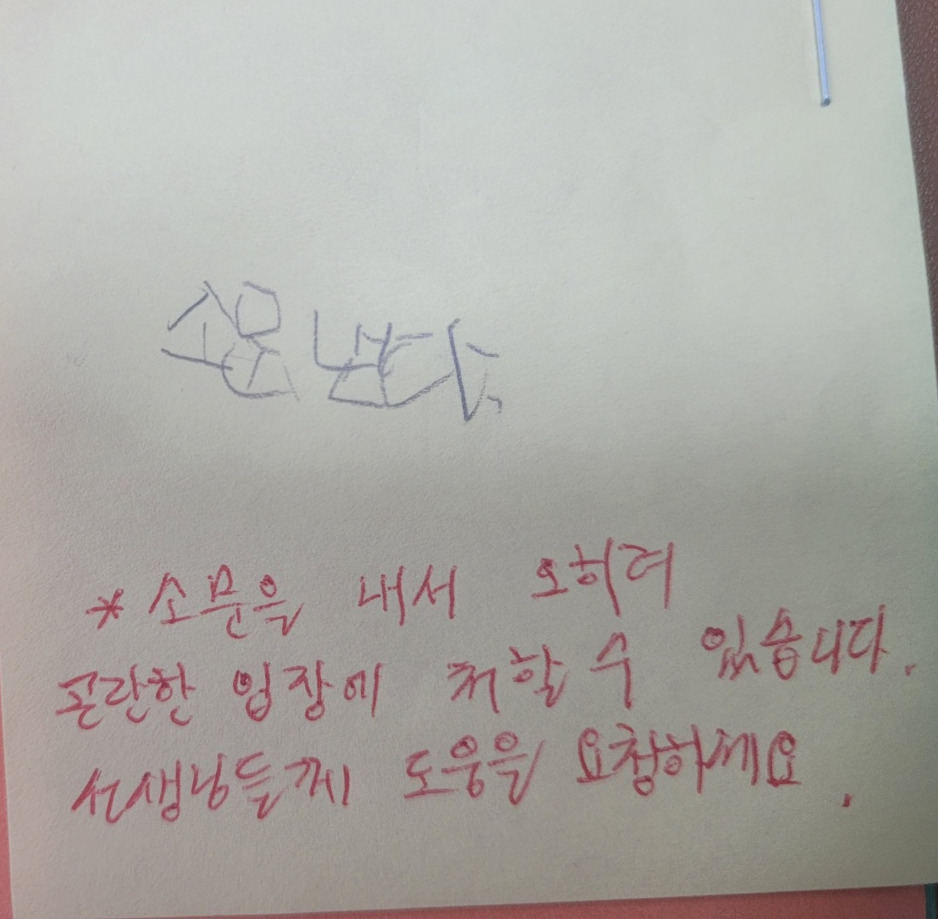 소문 낸다.
* 소문을 내서 오히려
곤란한 입장에 처할 수 있습니다.
선생님들께 도움을 요청하세요.